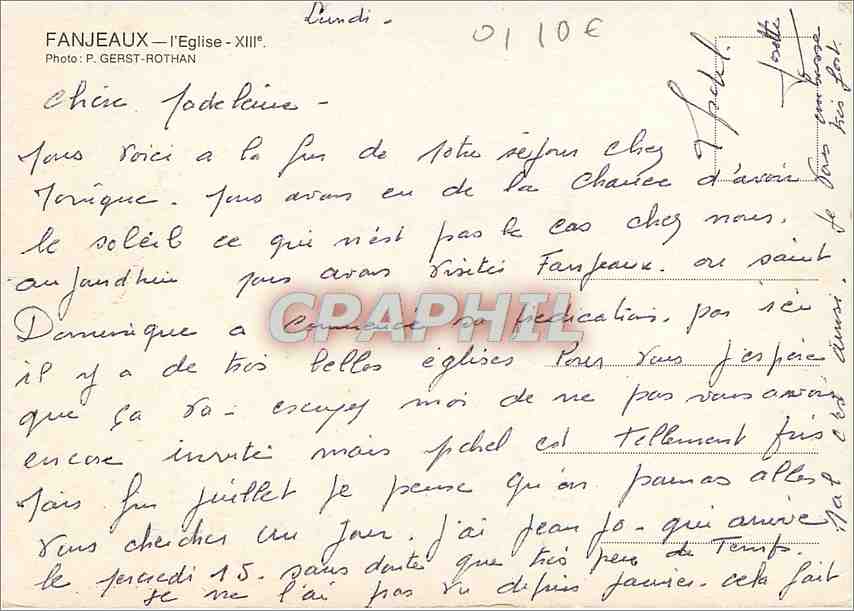 Lundi -
01 10 €
FANJEAUX — l'Eglise - XIIIe.
Photo : P. GERST-ROTHAN
Chère Madeleine -
Nous voici a la fin de notre séjour chez
Monique. Nous avons eu de la chance d'avoir
le soleil ce qui n'est pas le cas chez nous.
aujourdhui nous avons visités Fanjeaux. ou saint
Dominique a commencé sa prédication. par ici
il y a de très belles églises Pour vous j'espère
que ça va - excusez moi de ne pas vous avoir
encore invité mais michel est tellement pris
Mais fin juillet je pense qu'on pourras aller
vous chercher un jour. j'ai jean jo - qui arrive
le mercredi 15. sans doute que très peu de temps.
je ne l'ai pas vu depuis janvier - cela fait
mal c'est ainsi. Je vous embrasse
très fort.
Josette
Michel.
CPAPHIL